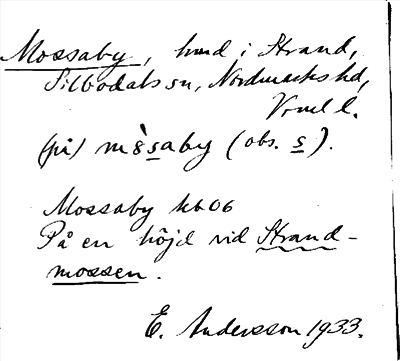 Mossaby, hmd i Strand,
Silbodals sn, Nordmarks hd,
Vrml l.
(på) m8̀saby (obs. s).
Mossaby kb 06
På en höjd vid Strand-
mossen.
E. Andersson 1933.